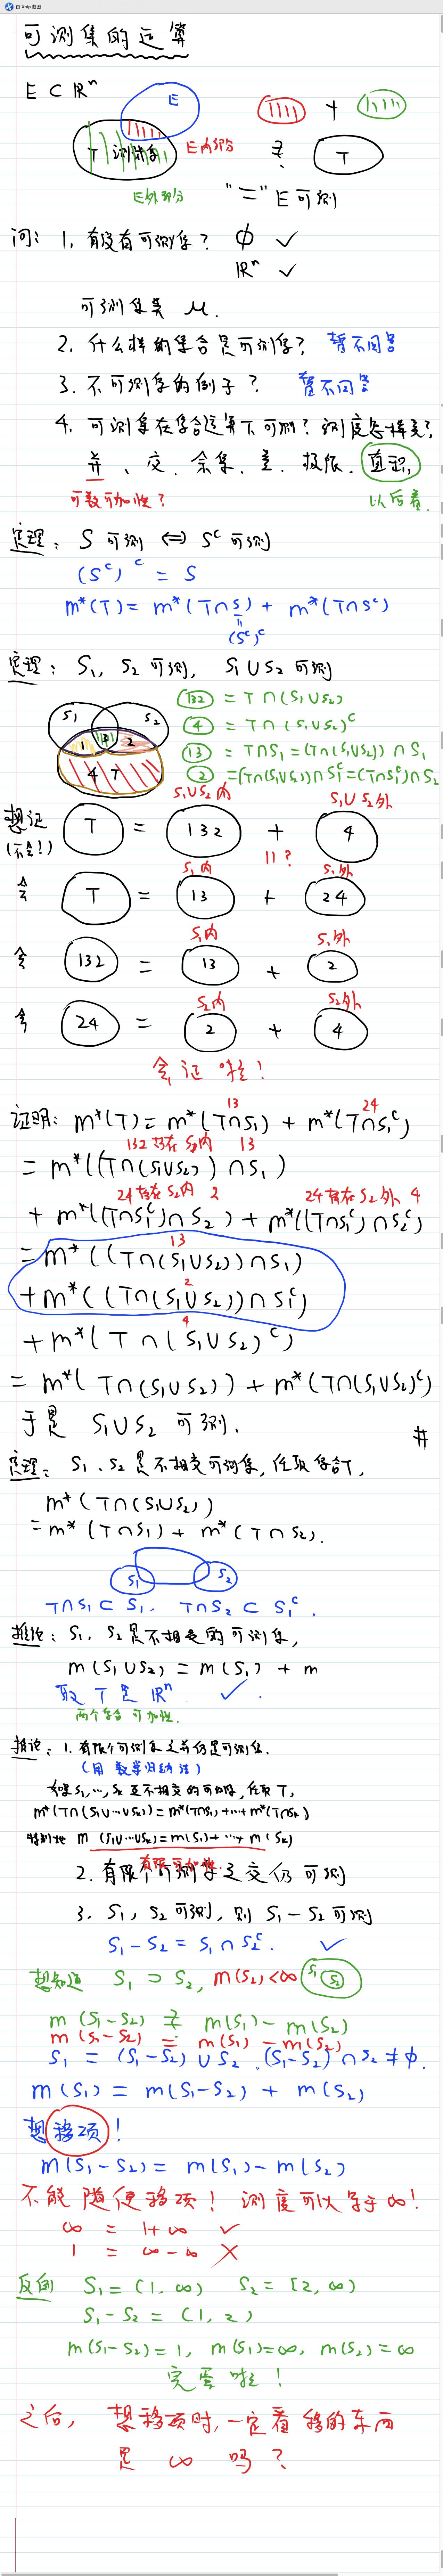 由 Xnip 截图
可测集的运算
E ⊂ ℝⁿ
E
T 测试集
E内部分
E外部分
+
≟ T
"=" E可测
问: 1. 有没有可测集? ∅ ✓
ℝⁿ ✓
可测集类 μ.
2. 什么样的集合是可测集? 暂不回答
3. 不可测集的例子? 暂不回答
4. 可测集在集合运算下可测? 测度怎样变?
并、交、余集、差、极限、直积,
可数可加性? 以后看.
定理: S 可测 ⇔ Sᶜ 可测
(Sᶜ)ᶜ = S
m*(T) = m*(T∩S) + m*(T∩Sᶜ)
(Sᶜ)ᶜ
定理: S₁, S₂ 可测, S₁∪S₂ 可测
S₁ S₂
1 3 2
4 T
132 = T∩(S₁∪S₂)
4 = T∩(S₁∪S₂)ᶜ
13 = T∩S₁ = (T∩(S₁∪S₂))∩S₁
2 = (T∩(S₁∪S₂))∩S₁ᶜ = (T∩S₁ᶜ)∩S₂
S₁∪S₂内 S₁∪S₂外
想证 T = 132 + 4
(不会!) 11 ?
S₁内 S₁外
会 T = 13 + 24
S₁内 S₁外
会 132 = 13 + 2
S₂内 S₂外
会 24 = 2 + 4
会证啦!
13 24
证明: m*(T) = m*(T∩S₁) + m*(T∩S₁ᶜ)
132 存在S₁内 13
= m*((T∩(S₁∪S₂))∩S₁)
24存在S₂内 2 24存在S₂外 4
+ m*((T∩S₁ᶜ)∩S₂) + m*((T∩S₁ᶜ)∩S₂ᶜ)
13
= m*((T∩(S₁∪S₂))∩S₁)
2
+ m*((T∩(S₁∪S₂))∩S₁ᶜ)
4
+ m*(T∩(S₁∪S₂)ᶜ)
= m*(T∩(S₁∪S₂)) + m*(T∩(S₁∪S₂)ᶜ)
于是 S₁∪S₂ 可测. #
定理: S₁, S₂ 是不相交可测集, 任取集合T,
m*(T∩(S₁∪S₂))
= m*(T∩S₁) + m*(T∩S₂).
S₁ S₂
T∩S₁ ⊂ S₁. T∩S₂ ⊂ S₁ᶜ.
推论: S₁, S₂ 是不相交的可测集,
m(S₁∪S₂) = m(S₁) + m
取 T 是 ℝⁿ ✓.
两个集合可加性.
推论: 1. 有限个可测集之并仍是可测集.
(用数学归纳法)
如果S₁,…,Sₖ 互不相交的可测集, 任取T,
m*(T∩(S₁∪…∪Sₖ)) = m*(T∩S₁)+…+m*(T∩Sₖ)
特别地 m(S₁∪…∪Sₖ) = m(S₁)+…+m(Sₖ)
有限可加性.
2. 有限个可测集之交仍可测
3. S₁, S₂ 可测, 则 S₁-S₂ 可测
S₁-S₂ = S₁∩S₂ᶜ. ✓
想知道 S₁ ⊃ S₂, m(S₂)<∞ S₁ S₂
m(S₁-S₂) ≟ m(S₁) - m(S₂)
m(S₁-S₂) = m(S₁) - m(S₂)
S₁ = (S₁-S₂)∪S₂. (S₁-S₂)∩S₂ ≠ ∅.
m(S₁) = m(S₁-S₂) + m(S₂)
想移项!
m(S₁-S₂) = m(S₁) - m(S₂)
不能随便移项! 测度可以等于∞!
∞ = 1+∞ ✓
1 = ∞-∞ ✗
反例 S₁=(1,∞) S₂=[2,∞)
S₁-S₂ = (1,2)
m(S₁-S₂)=1, m(S₁)=∞, m(S₂)=∞
完蛋啦!
之后, 想移项时, 一定看移的东西
是 ∞ 吗?